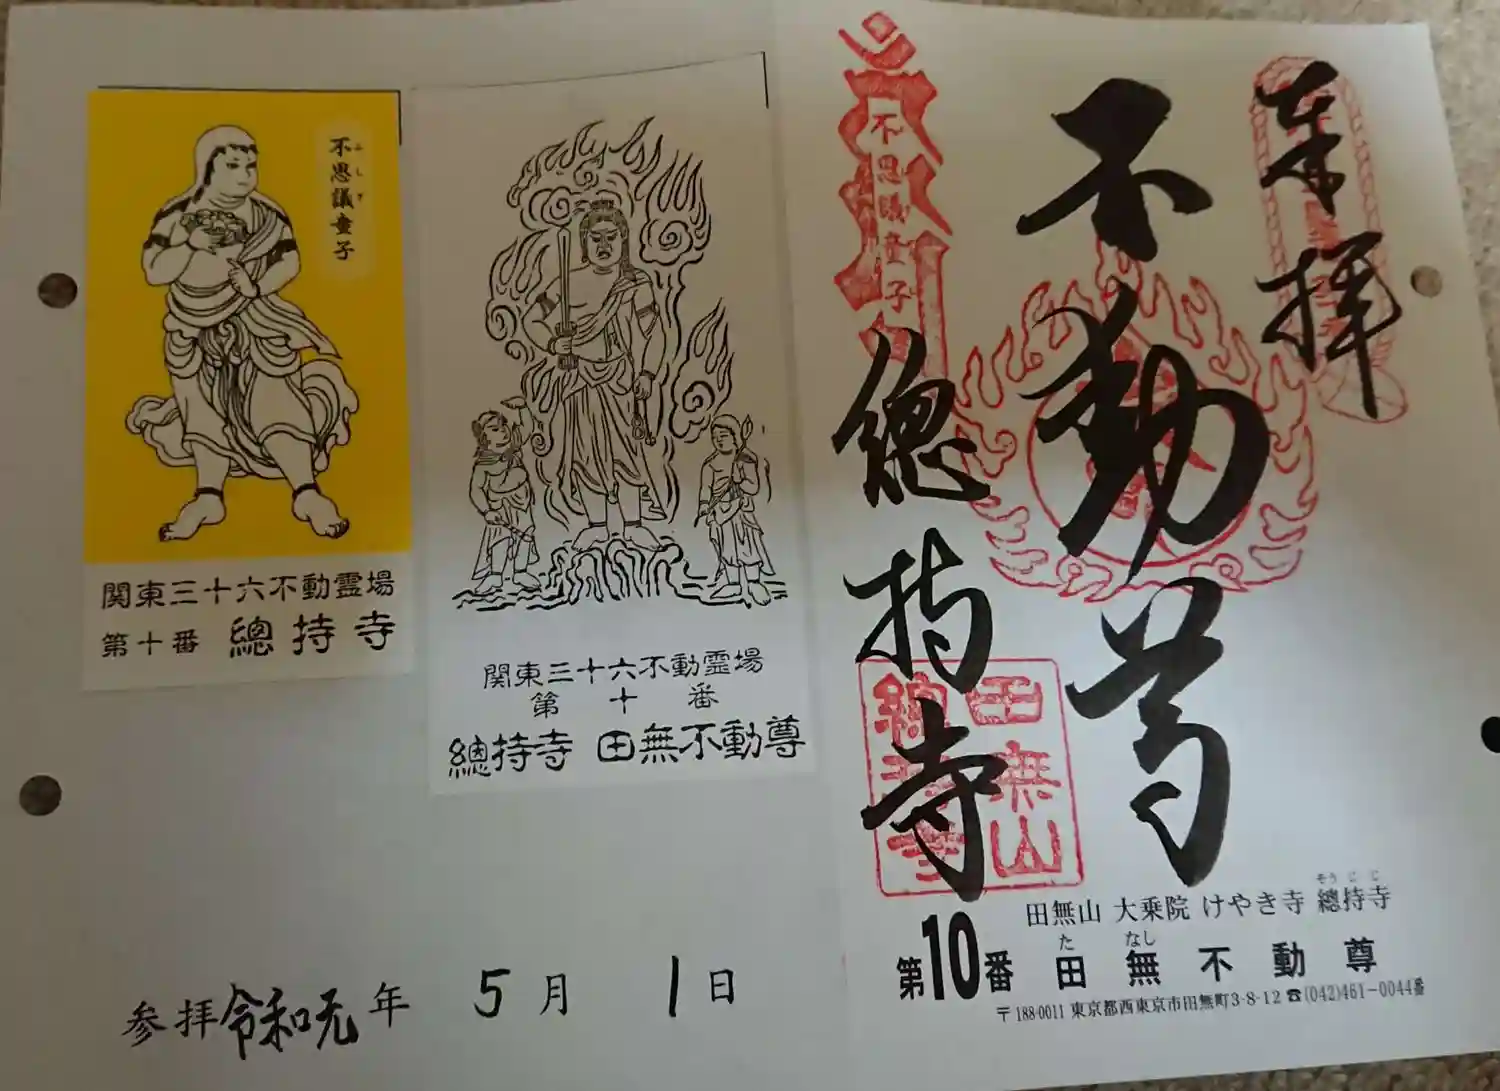 不思議童子
ふしぎ
関東三十六不動霊場
第十番 總持寺
関東三十六不動霊場
第十番
總持寺 田無不動尊
参拝令和元年 5月 1日
奉拝
不動尊
不思議童子
總持寺
田無山
總持寺
田無山 大乗院 けやき寺 總持寺
そうじじ
第10番 田無不動尊
たなし
〒188-0011 東京都西東京市田無町3-8-12 ☎(042)461-0044番